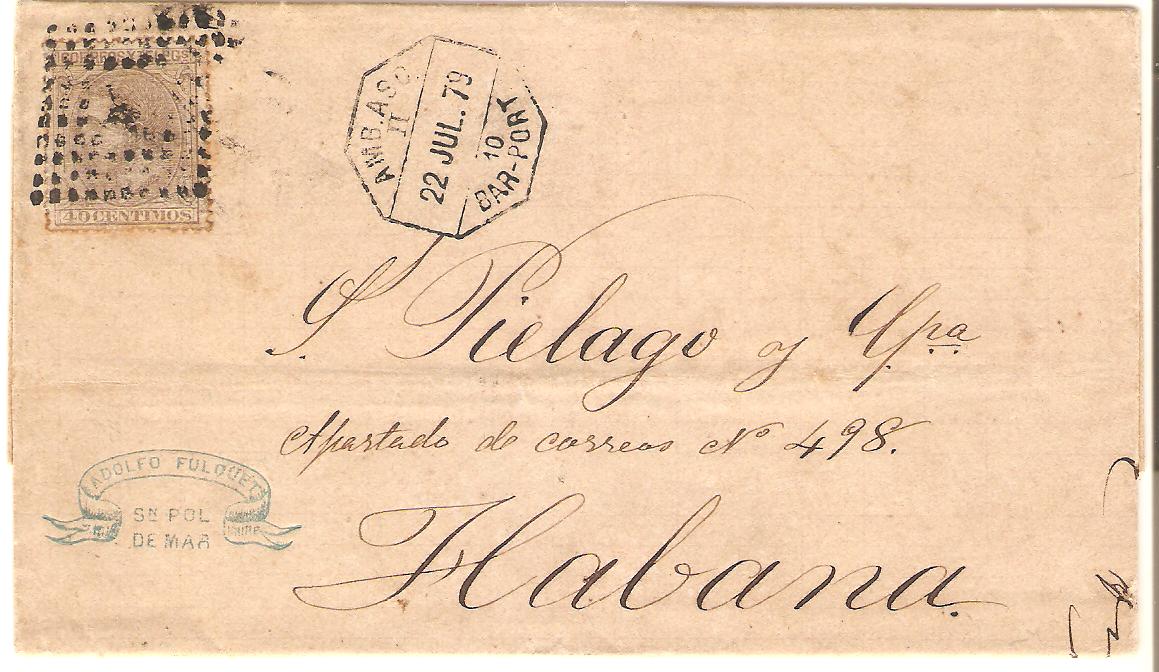 CORREOS Y TELEGS
40 CENTIMOS
AMB. ASC.
II
22 JUL. 79
10
BAR-PORT
S. Pielago y Cpa
Apartado de correos Nº 498.
Habana.
ADOLFO FULQUET
Sⁿ POL
DE MAR